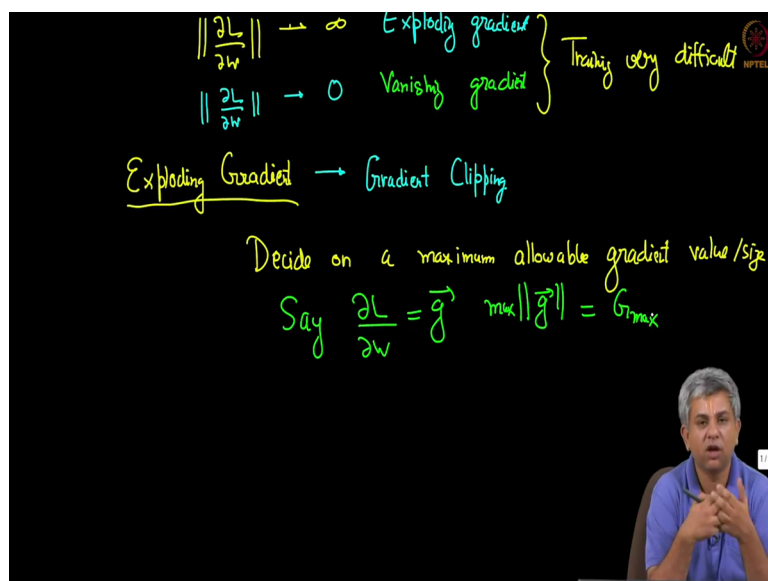 ||∂L/∂w|| → ∞ Explodig gradient
||∂L/∂w|| → 0 Vanishig gradient } Training very difficult
NPTEL
Exploding Gradient → Gradient Clipping
Decide on a maximum allowable gradient value/size
Say ∂L/∂w = g⃗ max||g⃗|| = Gmax
1/